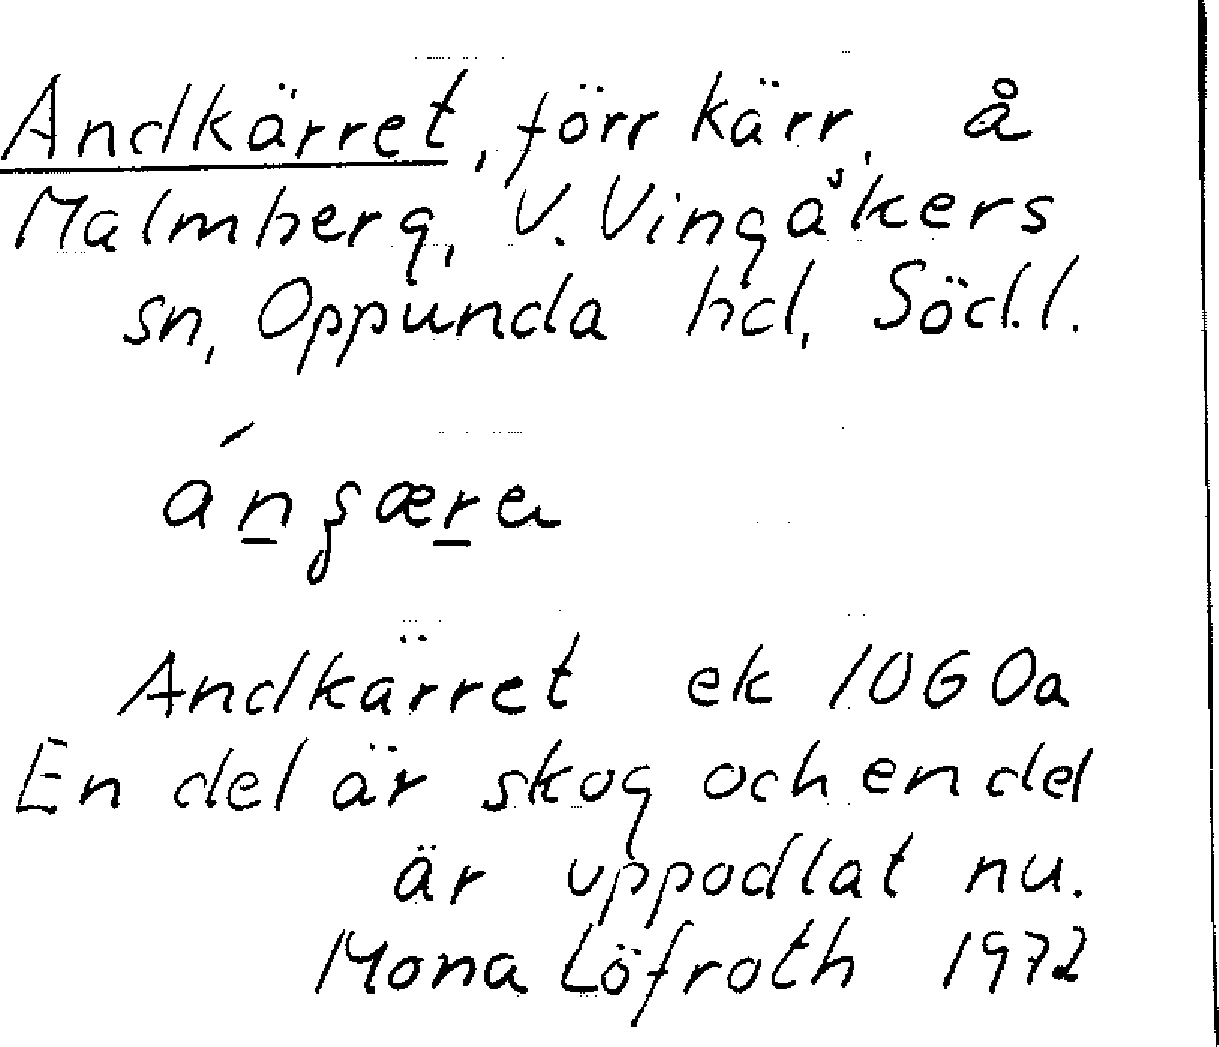 Andkärret, förr kärr, å
Malmberg, V. Vingåkers
sn, Oppunda hd, Södl.
Andkärret ek 10G 0a
En del är skog och en del
är uppodlat nu.
Mona Löfroth 1972